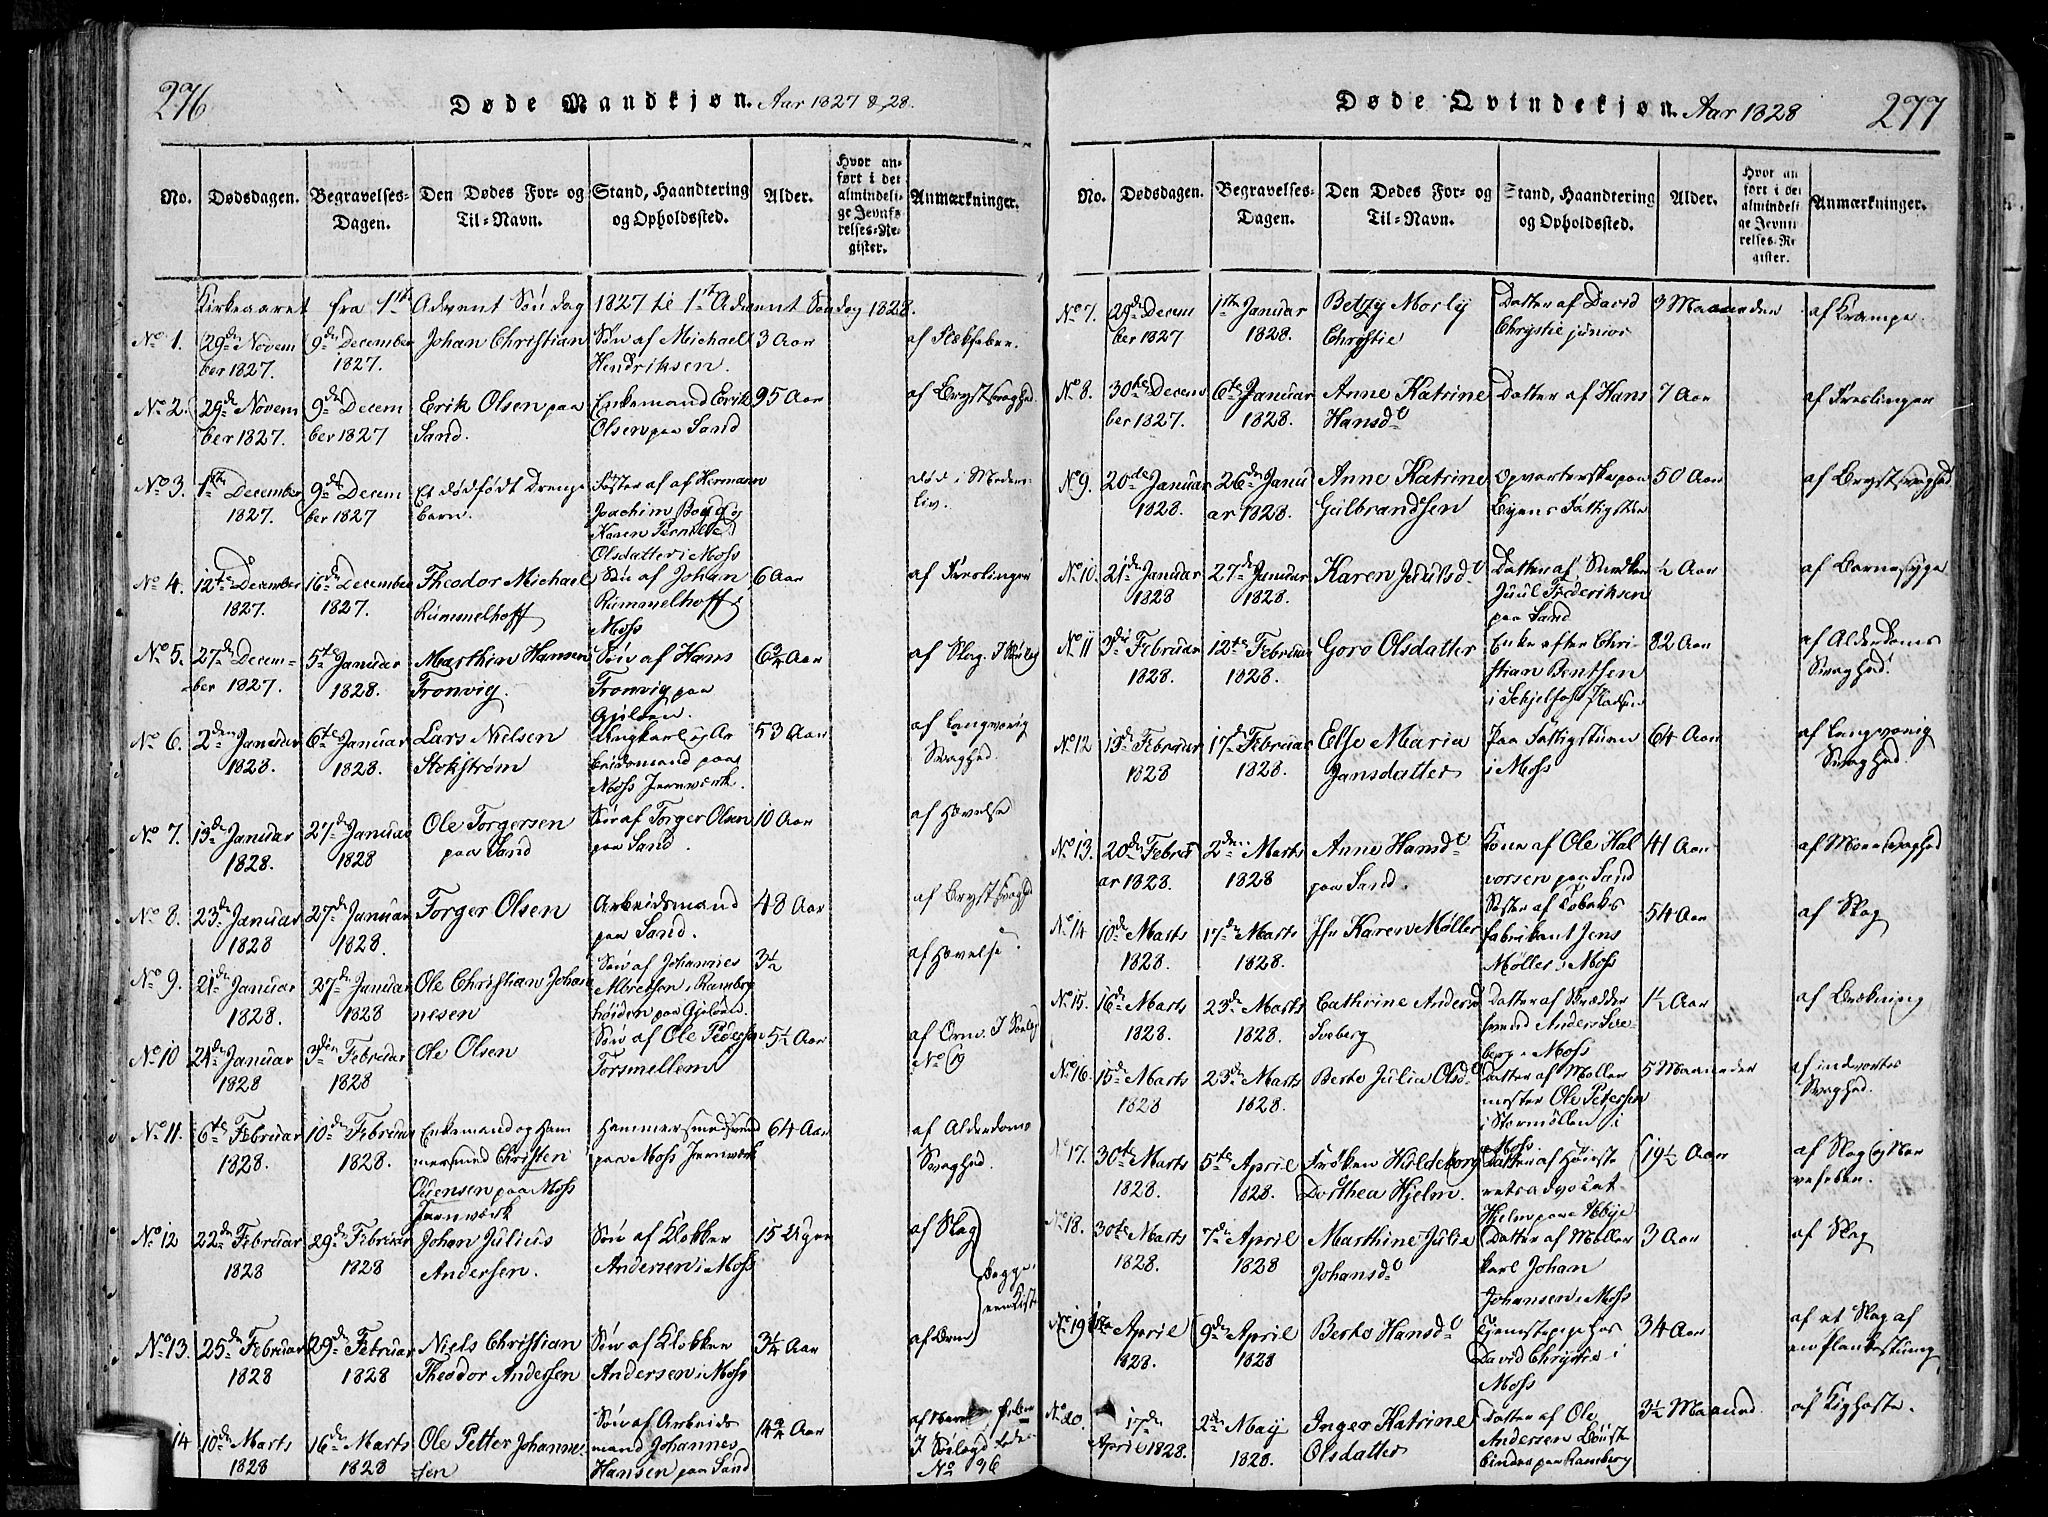 276
Døde Mandkjøn. Aar 1827 & 28.
No. Dødsdagen. Begravelses-Dagen. Den Dødes For- og Til-Navn. Stand, Haandtering og Opholdssted. Alder. Hvor anført i det almindelige Jevnførelses-Register. Anmærkninger.
Kirkeaaret fra 1ste Advent Søndag 1827 til 1ste Advent Søndag 1828.
No 1. 29de November 1827. 9de December 1827. Johan Christian Søn af Michael Hendriksen. 3 Aar
No 2. 29de November 1827. 9de December 1827 Erik Olsen paa Sand. Enkemand Erik Olsen paa Sand 95 Aar af Brystsvaghed
No 3. 1ste December 1827. 9de December 1827 Et dødfødt Drengebarn. Joachim og Karen Olsdatter i Moss død i Moders Liv.
No 4. 12te December 1827. 16de December 1827. Theodor Michael Rummelhoff Søn af Johan Rummelhoff i Moss 6 Aar
No 5. 27de December 1827. 5te Januar 1828. Marthin Hansen Tronvig. Søn af Hans Tronvig paa 6 3/4 Aar af Slag.
No 6. 2den Januar 1828. 6te Januar 1828. Lars Nielsen Stokstrøm paa Moss Jernværk. 53 Aar af Langvarig Svaghed.
No 7. 13de Januar 1828. 27de Januar 1828 Ole Torgersen paa Sand Søn af Torger Olsen paa Sand. 10 Aar af Hævelse
No 8. 23de Januar 1828 27de Januar 1828. Torger Olsen Arbeidsmand paa Sand. 48 Aar af Brystsvaghed
No 9. 21de Januar 1828. 27de Januar 1828 Ole Christian Johannesen Søn af Johannes 3 1/2 af Hævelse.
No 10 24de Januar 1828 3die Februar 1828 Ole Olsen Søn af Ole Pedersen 5 1/2 Aar af Orm. No 19
No 11. 6te Februar 1828. 10de Februar 1828. Enkemand og Hammersmed Christen paa Moss Jernværk Hammersmed paa Moss Jernværk 64 Aar af Alderdoms Svaghed.
No 12 22de Februar 1828 29de Februar 1828 Johan Julius Andersen. Søn af Klokker Andersen i Moss 15 Uger af Slag
No 13. 25de Februar 1828 29de Februar 1828 Niels Christian Theodor Andersen Søn af Klokker Andersen i Moss 3 1/4 Aar af Orm
begge i een Kiste
14 10de Marts 1828 16de Marts 1828 Ole Petter Johannesen Søn af Arbeidsmand Johannes Hansen paa Sand 4 3/4 Aar No 96
Døde Qvindekjøn. Aar 1828
277
No. Dødsdagen. Begravelses-Dagen. Den Dødes For- og Til-Navn. Stand, Haandtering og Opholdssted. Alder. Hvor anført i det almindelige Jevnførelses-Register. Anmærkninger.
No 7. 29de December 1827 1ste Januar 1828. Betzy Morly Christie Datter af David Chrystie junior 3 Maaneder af Krampe.
No 8. 30te December 1827. 6te Januar 1828. Anne Katrine Hansd. Datter af Hans 7 Aar
No 9. 20de Januar 1828. 26de Januar 1828. Anne Katrine Gulbrandsen Opvarterske paa Byens 50 Aar af Brystsvaghed.
No 10. 21de Januar 1828 27de Januar 1828. Karen Juulsd. Datter af Juul Frederiksen paa Sand 1/2 Aar af Barnesyge
No 11 3die Februar 1828. 12te Februar 1828. Goro Olsdatter Enke efter Christian Bentsen 82 Aar af Alderdoms Svaghed.
No 12 13de Februar 1828 17de Februar 1828 Else Maria Jansdatter Paa Fattigstuen i Moss 64 Aar af Langvarig Svaghed.
No 13. 20de Februar 1828. 2den Marts 1828 Anne Hansd. paa Sand. Kone af Ole Halvorsen paa Sand 41 Aar
No 14 10de Marts 1828. 17de Marts 1828. Jfr Karen Møller Søster af Tobaksfabrikant Jens Møller i Moss 54 Aar af Slag
No 15. 16de Marts 1828. 23de Marts 1828. Cathrine Andersd Sveberg Datter af Anders Sveberg i Moss 1 1/2 Aar af Brækning
No 16. 15de Marts 1828 23de Marts 1828. Berte Julia Olsd. Datter af Møllermester Ole Petersen i Stormøllen i Moss 5 Maaneder af indvortes Svaghed.
No 17. 30te Marts 1828. 5te April 1828. Frøken Hildeborg Dorthea Hjelm. Datter af Høiesteretsadvocat Hjelm 19 1/2 Aar af Slag og Nervefeber.
No 18. 30te Marts 1828. 7de April 1828 Marthine Julie Johansd. Datter af Møllerkarl Johan Johansen i Moss 3 Aar af Slag
No 19 April 1828. 9de April 1828 Berte Hansd. Tjenestepige hos David Chrystie i Moss 34 Aar af et Slag af en Plankestump
No 20. 17de April 1828. 2den May 1828. Inger Katrine Olsdatter Datter af Ole Andersen 3 1/2 Maaned. af Kighoste.